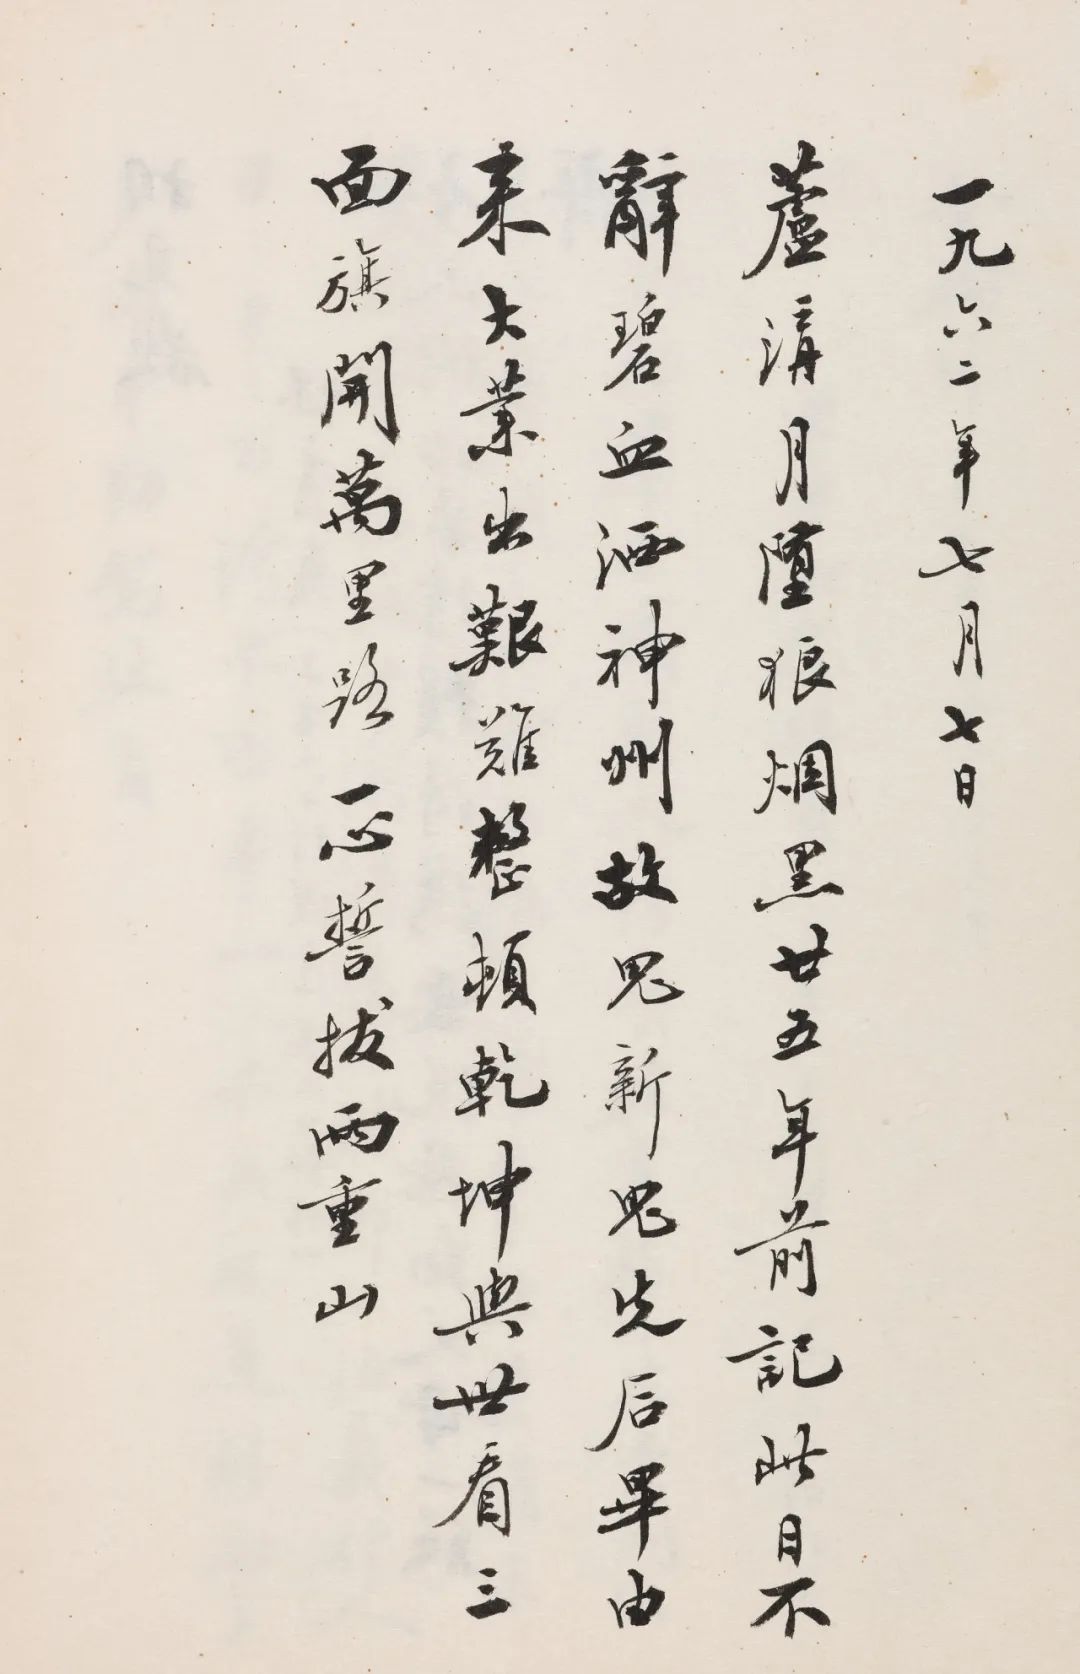 一九六二年七月七日
蘆溝月墮狼烟黑廿五年前記此日不
辭碧血洒神州故鬼新鬼先后畢由
来大業出艱難整頓乾坤與世看三
面旗開萬里路一心誓拔兩重山